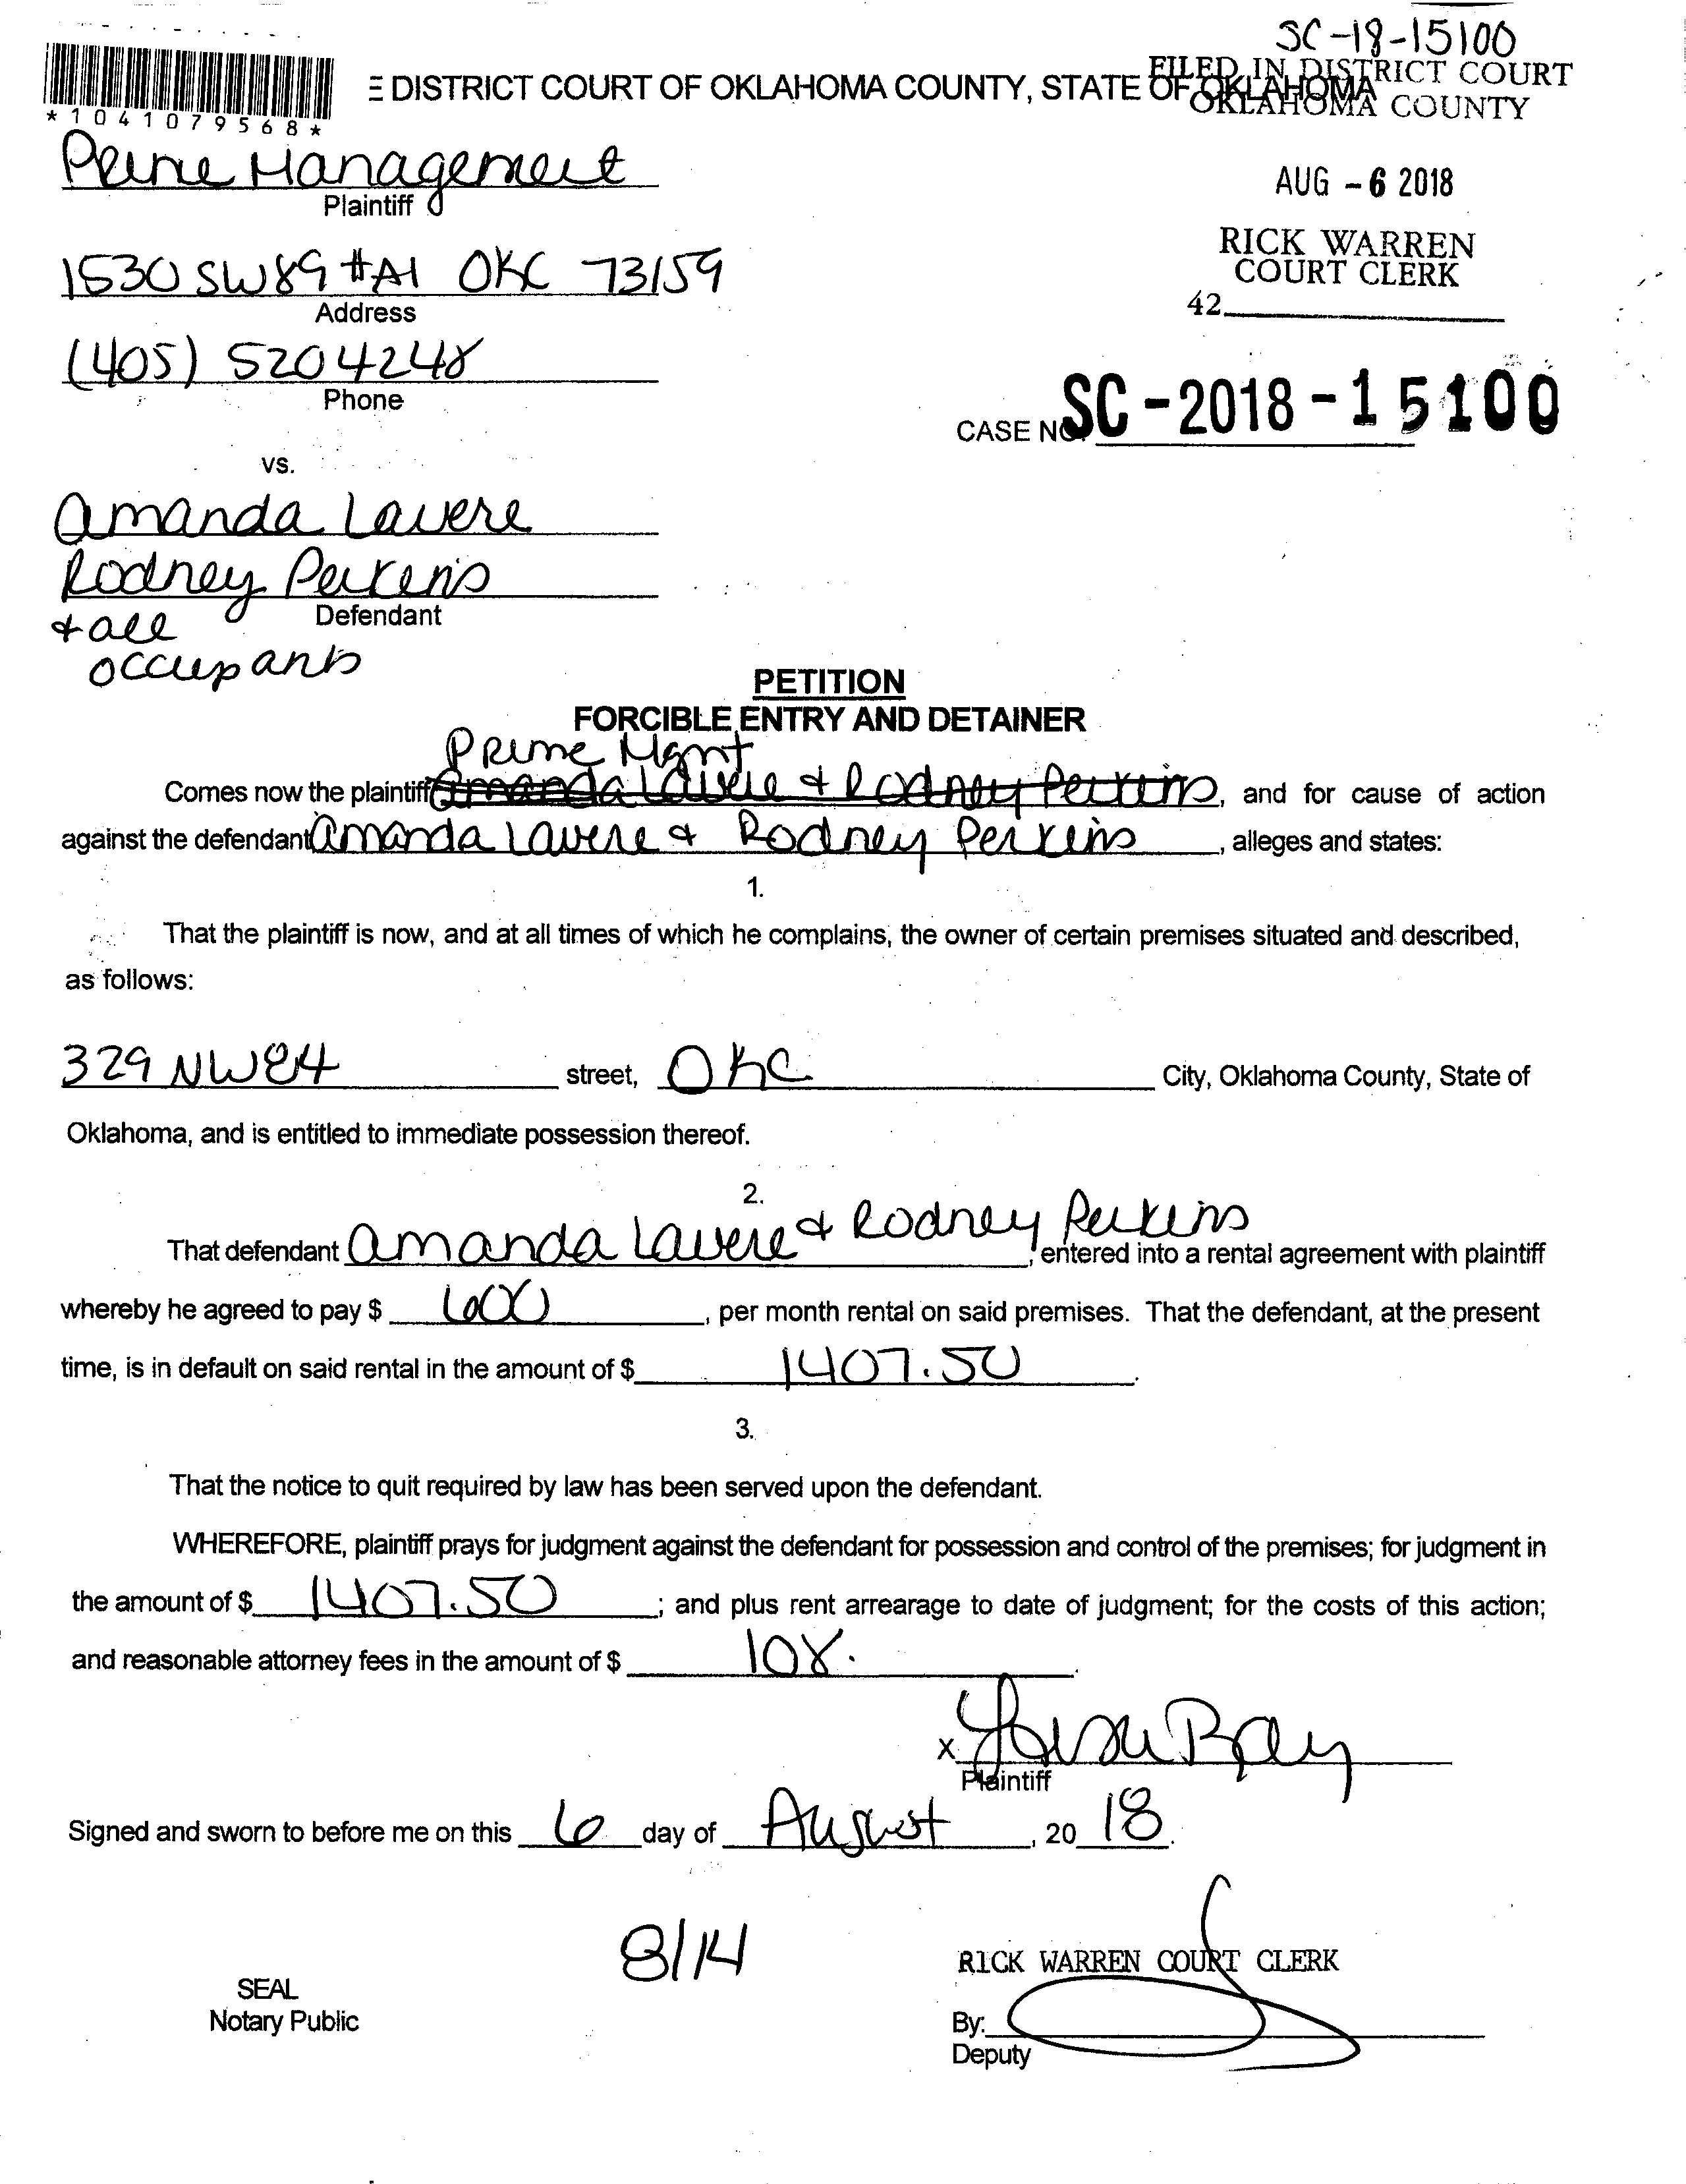 SC-18-15100
FILED IN DISTRICT COURT
OKLAHOMA COUNTY
E DISTRICT COURT OF OKLAHOMA COUNTY, STATE OF OKLAHOMA
*1041079568*
Prime Management
Plaintiff
AUG -6 2018
1530 SW89 #A1 OKC 73159
Address
RICK WARREN
COURT CLERK
42
(405) 5204248
Phone
CASE NO. SC-2018-15100
vs.
Amanda Lavere
Rodney Perkins
Defendant
+ all
occupants
PETITION
FORCIBLE ENTRY AND DETAINER
Prime Mgmt
Comes now the plaintiff Amanda Lavere + Rodney Perkins, and for cause of action
against the defendant Amanda Lavere + Rodney Perkins, alleges and states:
1.
That the plaintiff is now, and at all times of which he complains, the owner of certain premises situated and described,
as follows:
329 NW84 street, OKC City, Oklahoma County, State of
Oklahoma, and is entitled to immediate possession thereof.
2.
That defendant Amanda Lavere + Rodney Perkins, entered into a rental agreement with plaintiff
whereby he agreed to pay $ 600, per month rental on said premises. That the defendant, at the present
time, is in default on said rental in the amount of $ 1407.50.
3.
That the notice to quit required by law has been served upon the defendant.
WHEREFORE, plaintiff prays for judgment against the defendant for possession and control of the premises; for judgment in
the amount of $ 1407.50; and plus rent arrearage to date of judgment; for the costs of this action;
and reasonable attorney fees in the amount of $ 108.
X Lisa Ray
Plaintiff
Signed and sworn to before me on this 6 day of August, 20 18.
8/14
RICK WARREN COURT CLERK
SEAL
Notary Public
By:
Deputy